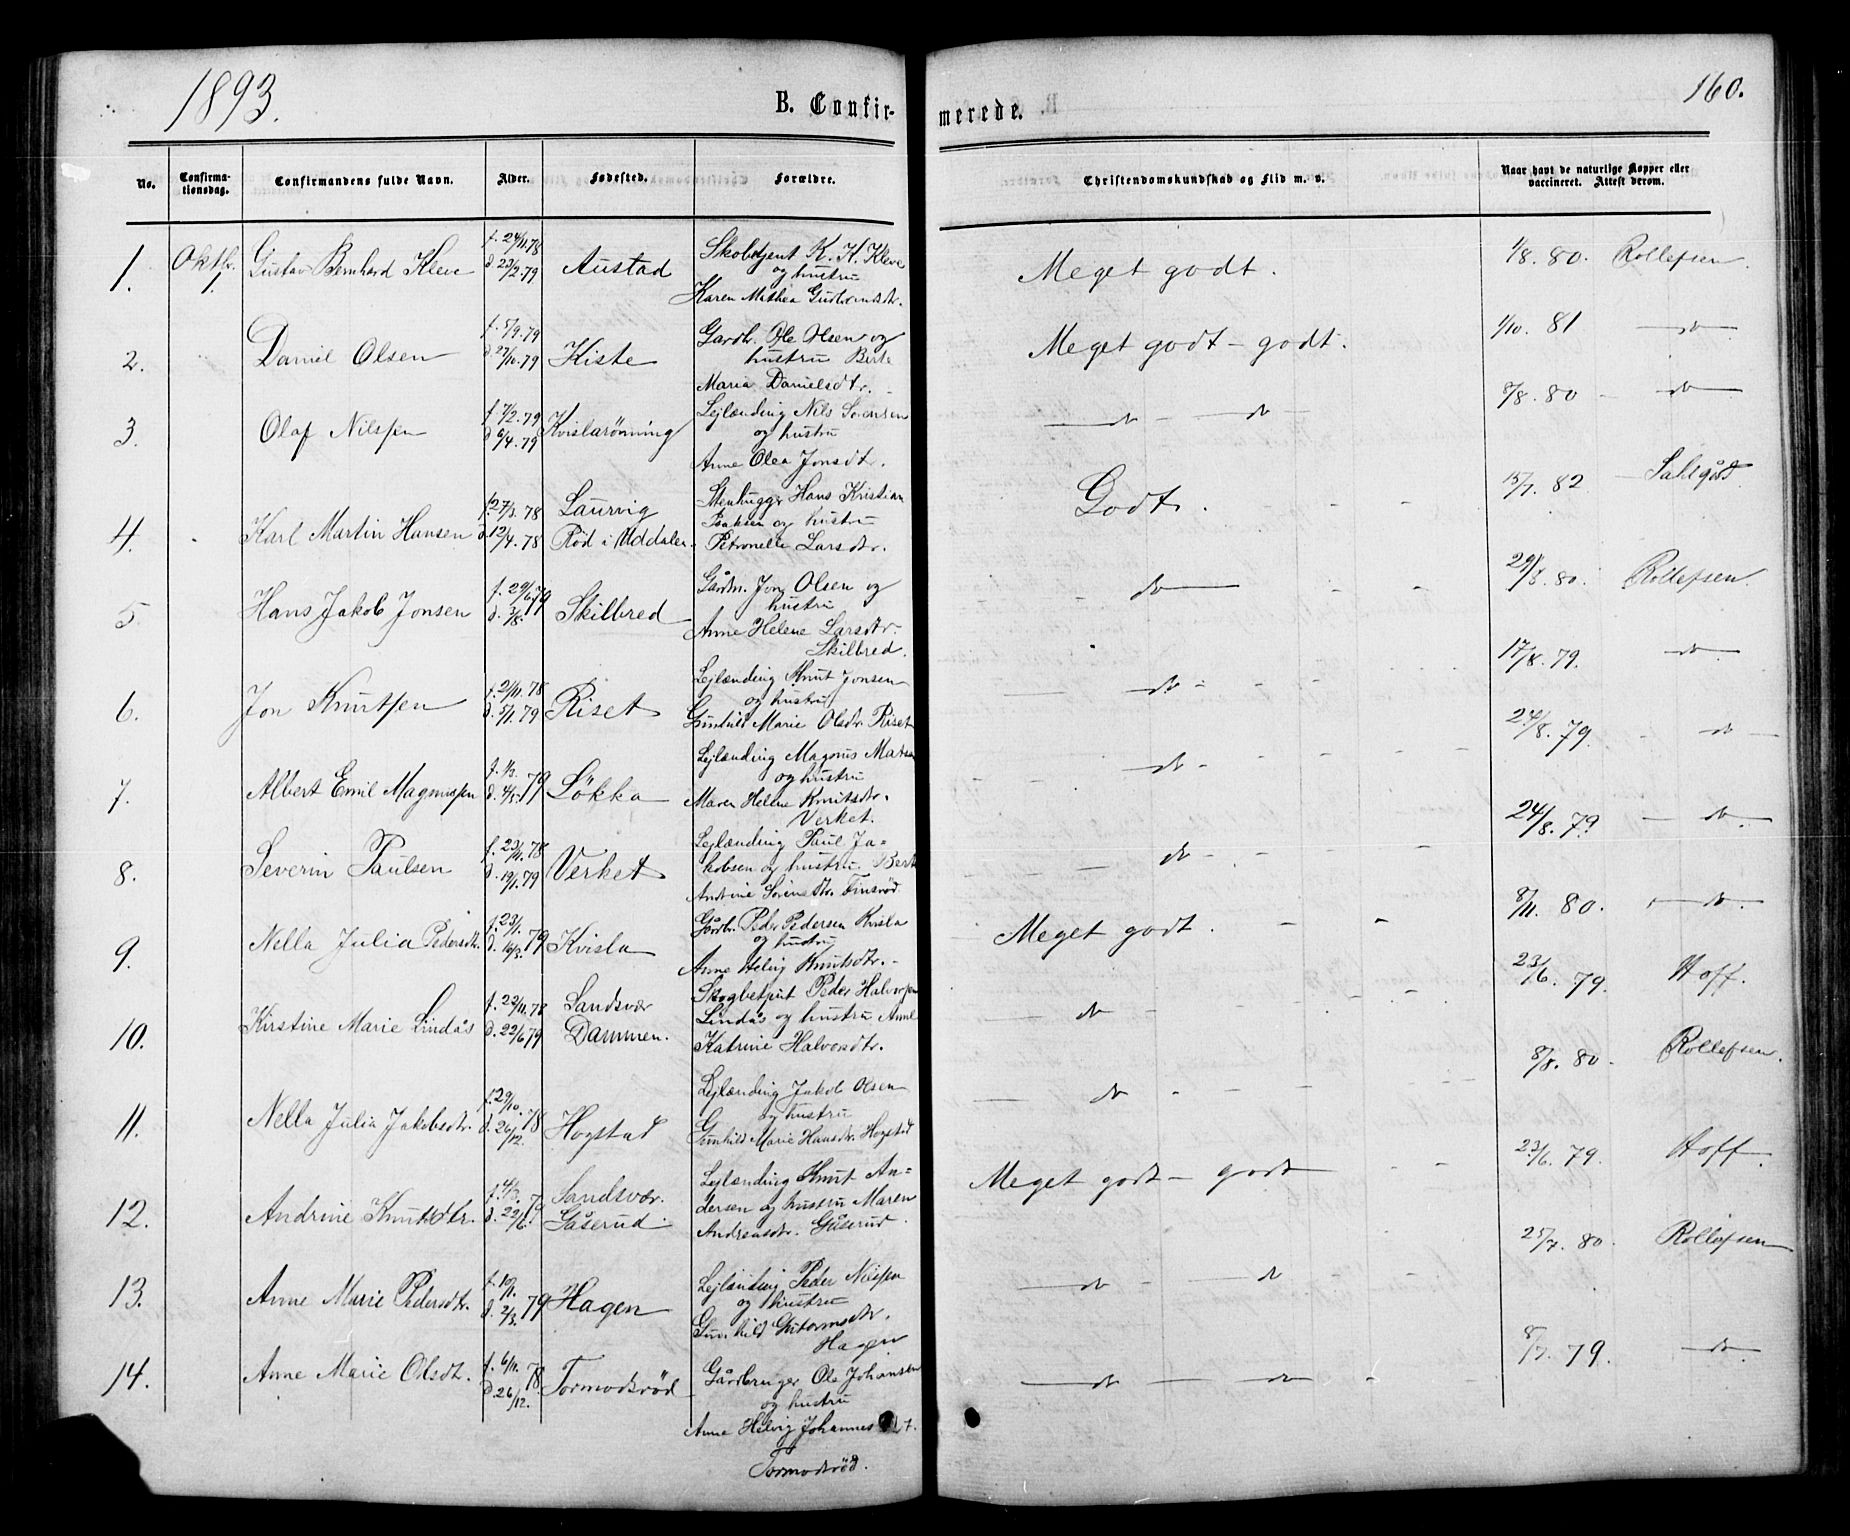 1893.
B. Confir-
merede.
160.
No.
Confirma-
tionsdag.
Confirmandens fulde Navn.
Alder.
Fødested.
Forældre.
Christendomskundskab og Flid m. v.
Naar havt de naturlige Kopper eller
vaccineret. Attest derom.
1. Oktbr. 1. Gustav Bernhard Kleve f. 24/11.78 Austad Skobetjent K. H. Kleve Meget godt. 1/8. 80. Rollefsen.
d. 23/2.79 og hustru
Karen Mathea Gulbrandsdtr.
2. Daniel Olsen f. 5/9.79 Kiste Gardbr. Ole Olsen og Meget godt - godt. 1/10. 81 do
d. 27/10.79 hustru Berte
Maria Danielsdtr.
3. Olaf Nilssen f. 7/2.79 Kvislarønning Lejlænding Nils Sorensen do - do 8/8. 80 - do
d. 6/4.79 og hustru
Anne Olea Jonsdtr.
4. Karl Martin Hansen f. 27/3.78 Laurvig Stenhugger Hans Kristian Godt. 15/7. 82
d. 12/4.78 Rød i Uddalen. Isaksen og hustru
Petronelle Larsdtr.
5. Hans Jakob Jonsen f. 29/6 79 Skilbred Gårdbr. Jon Olsen og do 29/8. 80. Rollefsen
d. 3/8. hustru
Anne Helene Larsdtr.
Skilbred.
6. Jon Knutsen f. 21/11.78 Riset Lejlænding Knut Jonsen do 17/8. 79. do
d. 5/1.79 og hustru
Gunhild Marie Olsdtr. Riset
7. Albert Emil Magnussen f. 1/3. 79 Løkka Lejlænding Magnus Matsen do 24/8. 79. - do
d. 4/5. og hustru
Maren Helene Knutsdtr.
Verket.
8. Severin Paulsen f. 23/11.78 Verket Lejlænding Paul Ja- do 24/8. 79 - do
d. 19/1.79 kobsen og hustru Berte
Andrine Sørensdtr. Finsrød
9. Nella Julia Pedersdtr. f. 23/1. 79 Kvisla Gårdbr. Peder Pedersen Kvisla Meget godt. 8/11. 80. do
d. 16/3. og hustru
Anne Helvig Knutsdtr.
10. Kirstine Marie Lindås f. 22/11.78 Sandsvær Skogbetjent Peder Halvorsen do 23/6. 79. Hoff.
d. 22/6 79 Dammen. Lindås og hustru Anne
Katrine Halvorsdtr.
11. Nella Julia Jakobsdtr. f. 29/10. 78 Hogstad Lejlænding Jakob Olsen do 8/8. 80. Rollefsen.
d. 26/12. og hustru
Gunhild Marie Hansdtr. Hogstad
12. Andrine Knutsdtr. f. 4/3. 79 Sandsvær. Lejlænding Knut An- Meget godt - godt 23/6. 79. Hoff.
d. 22/6. Gåserud. dersen og hustru Maren
Andreasdtr. Gåserud.
13. Anne Marie Pedersdtr. f. 10/1. 79 Hagen Lejlænding Peder Nilssen do - do 25/7. 80. Rollefsen
d. 2/3. og hustru
Gunhild Guttormsdtr.
Hagen
14. Anne Marie Olsdtr. f. 6/11. 78 Tormodsrød Gårdbruger Ole Johansen do - do 8/7. 79. do
d. 26/12. og hustru
Anne Helvig Johannesdtr.
Tormodsrød.